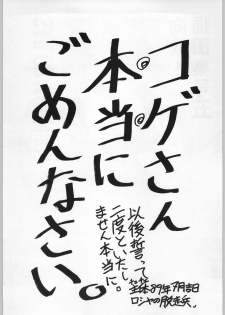 コゲさん
本当に
ごめんなさい。
以後誓って
二度といたし
ません本当に。
89年7月吉日
ロシヤの脱走兵